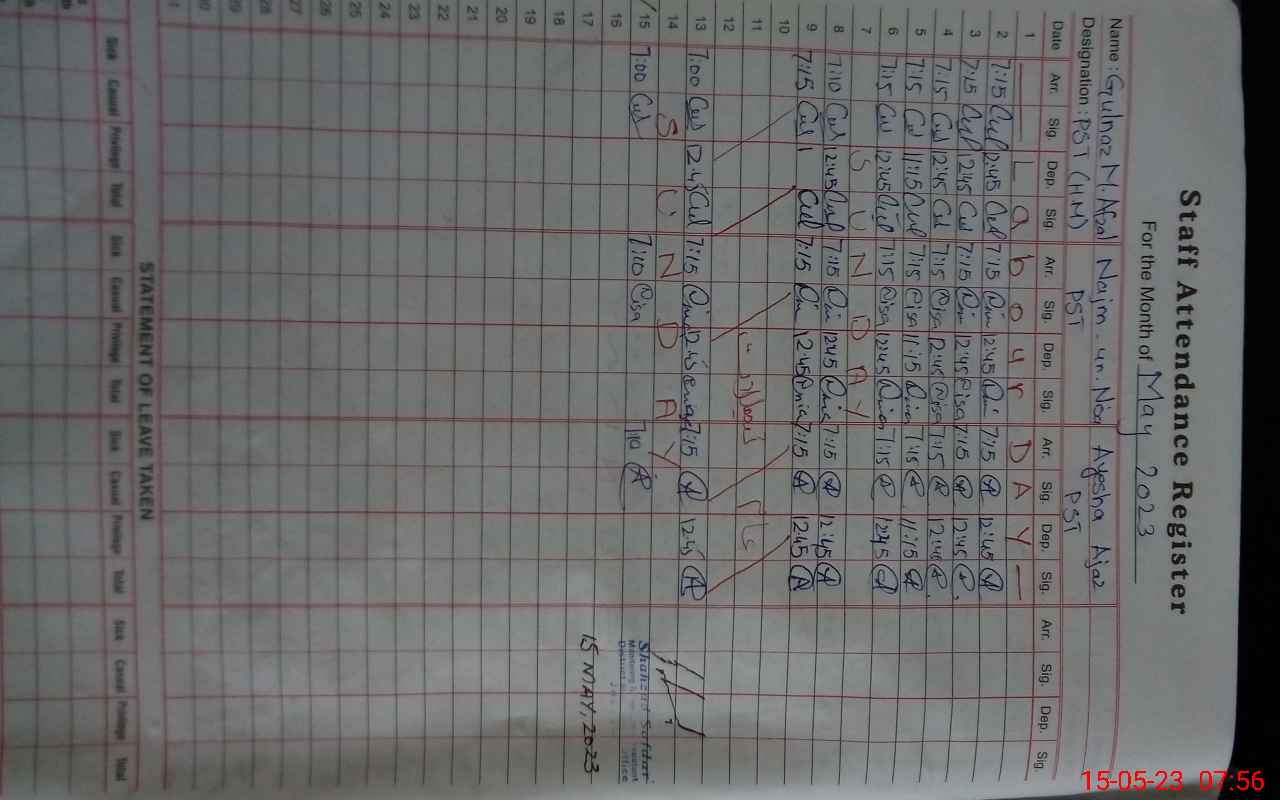 Staff Attendance Register
For the Month of May 2023
Name : Gulnaz M. Afzal Najm-un-Nisa Ayesha Ajaz
Designation : PST (HM) PST PST
Date Arr. Sig. Dep. Sig. Arr. Sig. Dep. Sig. Arr. Sig. Dep. Sig. Arr. Sig. Dep. Sig.
1 Labour DAY
2 7:15 12:45 7:15 12:45 7:15 12:45
3 7:15 12:45 7:15 12:45 7:15 12:45
4 7:15 12:45 7:15 12:45 7:15 12:45
5 7:15 11:15 7:15 11:15 7:15 11:15
6 7:15 12:45 7:15 12:45 7:15 12:45
7 SUNDAY
8 7:10 12:45 7:15 12:45 7:15 12:45
9 7:15 7:15 12:45 7:15 12:45
10
11
12
13 7:00 12:45 7:15 12:45 7:15 12:45
14 SUNDAY
15 7:00 7:10 7:10
16
17
18
19
20
21
22
23
24
25
26
27
28
29
30
31
Shahzad Safdar
15 MAY, 2023
STATEMENT OF LEAVE TAKEN
Sick Casual Privilege Total Sick Casual Privilege Total Sick Casual Privilege Total Sick Casual Privilege Total
15-05-23 07:56